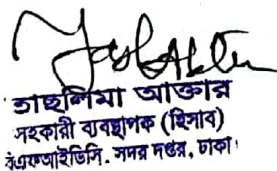 তাছলিমা আক্তার
সহকারী ব্যবস্থাপক (হিসাব)
বিএফআইডিসি. সদর দপ্তর, ঢাকা।